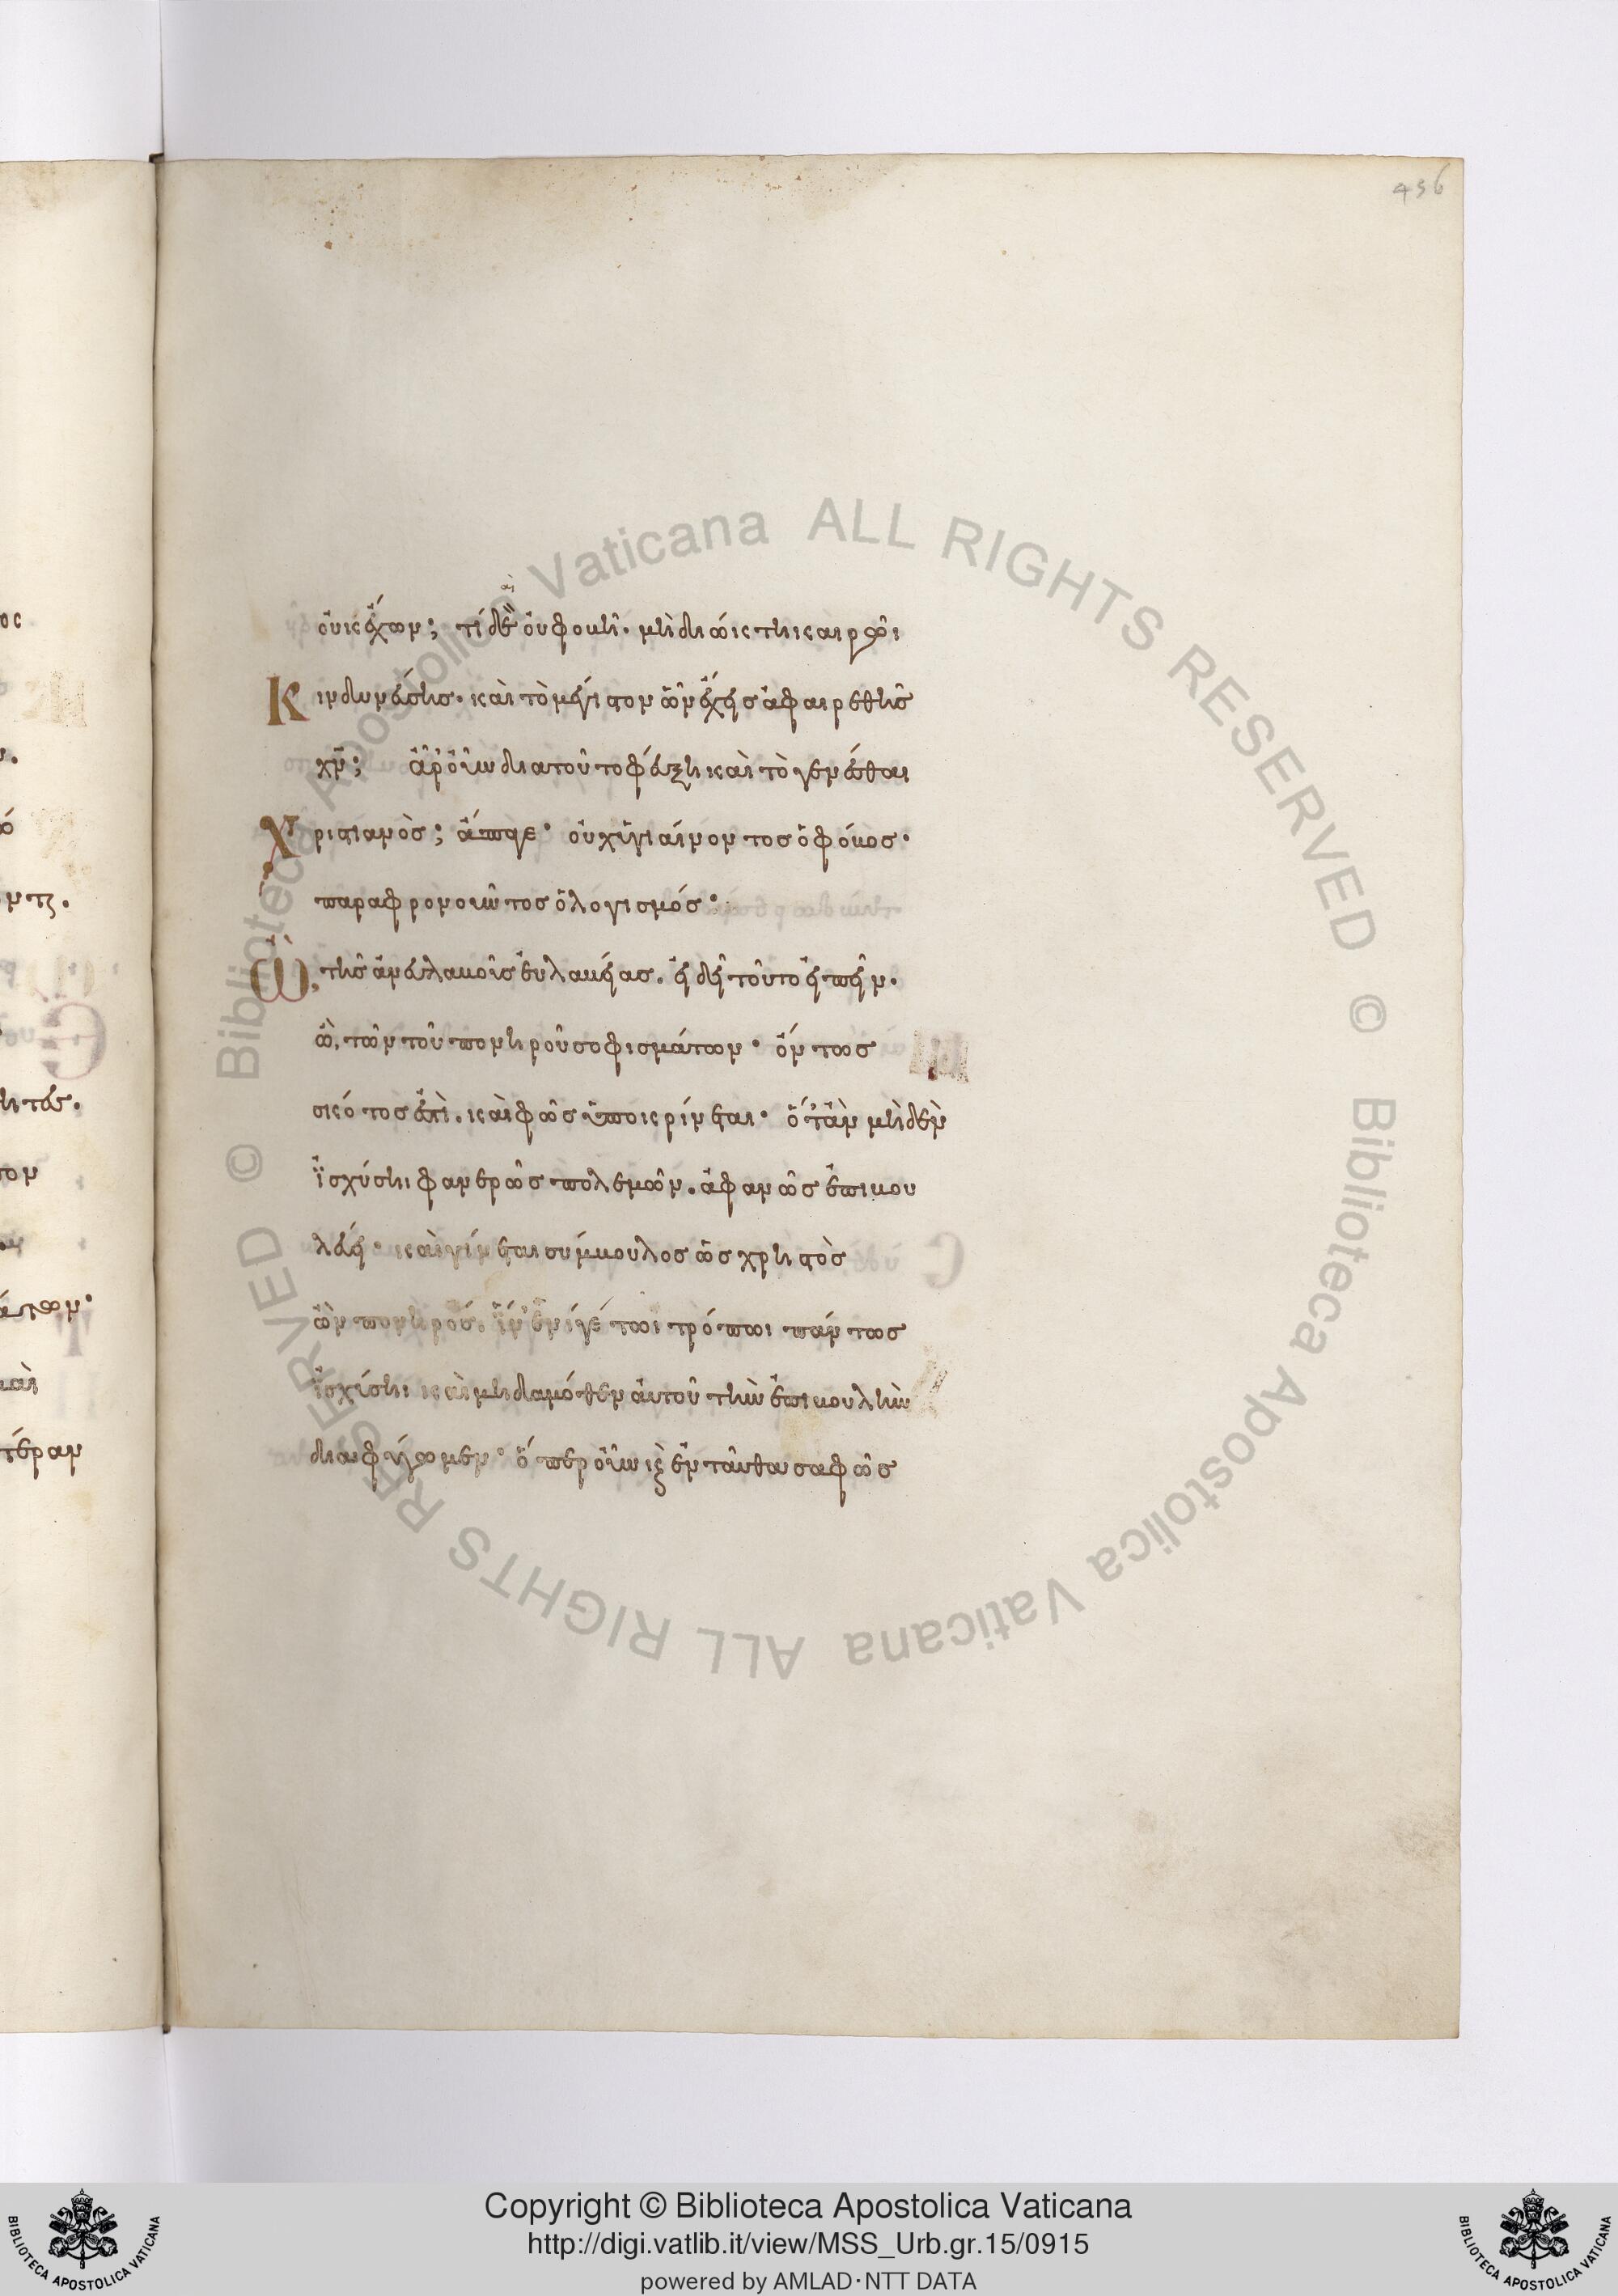 456
οὐκ ἔχων; τί δὲ οὐ φοβῆ· μὴ διώκτη καιρῶι
κινδυνεύσης· καὶ τὸ μέγιστον ὧν ἔχεις ἀφαιρεθῆς
χν; ἆρ' οὖν διατοῦτο φεύξη καὶ τὸ γενέσθαι
χριστιανὸς; ἄπαγε· οὐχ ὑγιαίνοντος ὁ φόβος·
παραφρονοῦντος ὁ λογισμός·
ὢ, τῆς ἀνευλαβοῦς εὐλαβείας. εἰ δεῖ τοῦτο εἰπεῖν·
ὢ, τῶν τοῦ πονηροῦ σοφισμάτων· ὄντως
σκότος ἐστὶ. καὶ φῶς ὑποκρίνεται· ὅτ' ἂν μηδὲν
ἰσχύση φανερῶς πολεμῶν. ἀφανῶς ἐπιβου
λεύει· καὶ γίνεται σύμβουλος ὡς χρηστὸς
ὢν πονηρός. ἵν' ἑνί γέ τωι τρόπωι πάντως
ἰσχύση καὶ μηδαμόθεν αὐτοῦ τὴν ἐπιβουλὴν
διαφύγωμεν· ὅπερ οὖν κἀνταῦθα σαφῶς
Copyright © Biblioteca Apostolica Vaticana
http://digi.vatlib.it/view/MSS_Urb.gr.15/0915
powered by AMLAD·NTT DATA
BIBLIOTECA APOSTOLICA VATICANA
BIBLIOTECA APOSTOLICA VATICANA
© Biblioteca Apostolica Vaticana ALL RIGHTS RESERVED
© Biblioteca Apostolica Vaticana ALL RIGHTS RESERVED